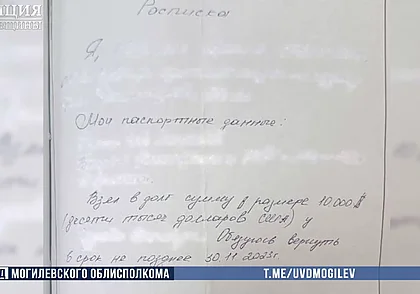 ЦИЯ
Расписка
Я,
Мои паспортные данные:
Взял в долг сумму в размере 10 000 $
(десяти тысяч долларов США) у
Обязуюсь вернуть
в срок не позднее 30.11.2023г.
Д МОГИЛЕВСКОГО ОБЛИСПОЛКОМА
T.ME/UVDMOGILEV